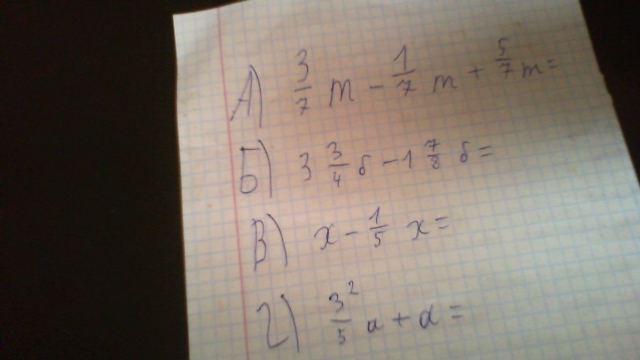 А) 3/7 m - 1/7 m + 5/7 m =
Б) 3 3/4 б - 1 7/8 б =
В) x - 1/5 x =
Г) 3²/5 a + a =